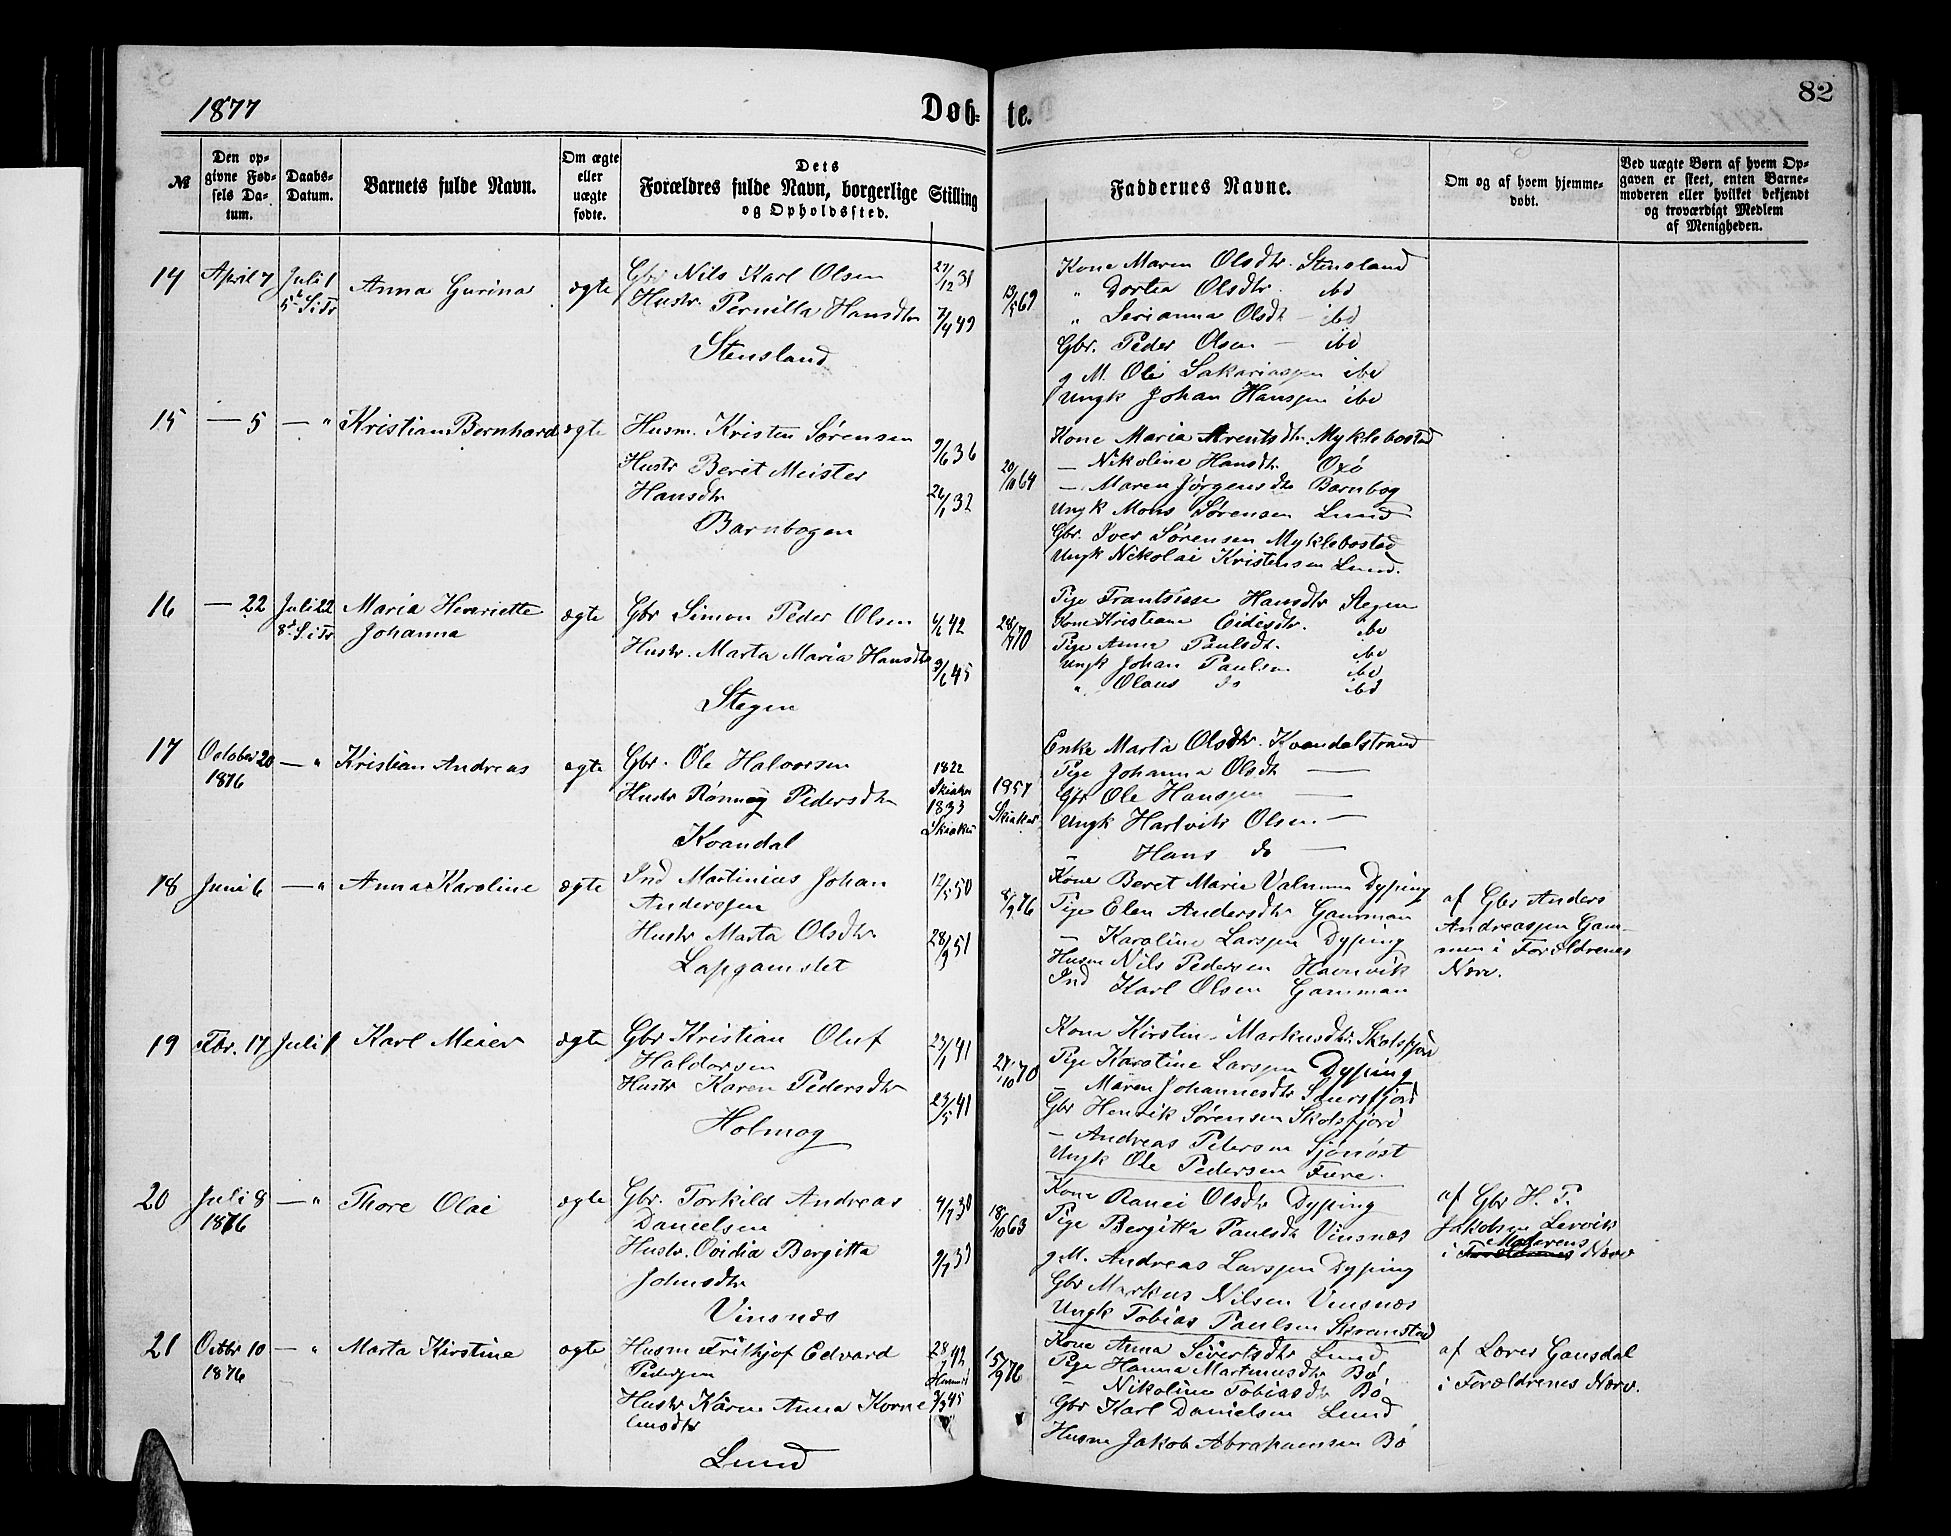 1877
Døb-
te.
82
№
Den op-
givne Fød-
sels Da-
tum.
Daabs-
Datum.
Barnets fulde Navn.
Om ægte
eller
uægte
fødte.
Dets
Forældres fulde Navn, borgerlige Stilling
og Opholdssted.
Faddernes Navne.
Om og af hvem hjemme-
døbt.
Ved uægte Børn af hvem Op-
gaven er skeet, enten Barne-
moderen eller hvilket bekjendt
og troværdigt Medlem
af Menigheden.
14
April 7
Juli 1
Anna Gurina
ægte
Gbr Nils Karl Olsen
Hustr. Pernilla Hansdtr
Stensland
13/5 69
Kone Maren Olsdtr. Stensland
" Dortea Olsdtr. ibd
" Serianna Olsdt - ibd
Gbr. Peder Olsen - ibd
g M. Ole Sakariassen ibd
Ungk Johan Hanssen ibd
15
— 5
— "
Kristian Bernhard
ægte
Husm. Kristen Sørensen
Hustr Berit Meister
Hansdtr
Barnbogen
9/6 36
26/1 32
Kone Maria Arentsdtr. Myklebostad
— Nikoline Hansdtr Oxø
— Maren Jørgensdtr Barnbog
Ungk Mons Sørensen Lund
Gbr. Iver Sørensen Myklebostad
Ungk Nikolai Kristensen Lund.
16
— 22
Juli 22
Maria Henriette
Johanna
ægte
Gbr Simon Peder Olsen
Hustr. Marta Maria Hansdtr
Stegen
9/6 45
Pige Frantsisse Hansdtr Stegen
Kone Kristiane Eidisdtr. ibd
Pige Anna Paulsdt. ibd
Ungk Johan Paulsen ibd
" Olaus do ibd
17
October 20
1876
— "
Kristian Andreas
ægte
Gbr. Ole Halvorsen
Hustr Rønnøg Pedersdtr
Kvandal
1822
Skiaker
1833
Skiaker
Enke Marta Olsdtr. Kvandalstrand
Pige Johanna Olsdt —
Gbr Ole Hanssen —
Ungk Hartvik Olsen —
— Hans do —
18
Juni 6
— "
Anna Karoline
ægte
Ind Martinius Johan
Anderssen
Hustr Marta Olsdtr.
Lapgamslet
12/5 50
28/9 51
8/9 76
Kone Beret Maria Dyping
Pige Elen Andersdtr Gamman
— Karoline Larssen Dyping
Husm Nils Pedersen Havnvik
Ind Karl Olsen Gamman
af Gbr Anders
Andreassen Gam-
men i Forældrenes
Nærv.
19
Fbr. 17
Juli 1
Karl Meier
ægte
Gbr Kristian Oluf
Haldorsen
Hustr Karen Pedersdtr
Holmog
23/1 41
23/5 41
27/10 70
Kone Kirstin Markusdtr. Skotsfjord
Pige Karoline Larssen Dyping
— Maren Johannesdtr Saursfjord
Gbr Henrik Sørensen Skotsfjord
— Andreas Petersen Sjønøst
Ungk Ole Pedersen Fure.
20
Juli 8
1876
— "
Thore Olai
ægte
Gbr. Torkild Andreas
Danielsen
Hustr. Ovidia Bergitta
Johnsdtr
Vinsnæs
18/10 63
Kone Ranei Olsdtr Dyping
Pige Bergitta Paulsdt Vinsnæs
g M. Andreas Larssen Dyping
Gbr Markus Nilsen Vinsnæs
Ungk Tobias Paulsen Skranstad
af Gbr H. P.
Jakobsen Lervik
Moderens
i Forældrenes Nærv
21
Octbr 10
1876
— "
Marta Kirstine
ægte
Husm Fritkjof Edvard
Pederssen
Hustr Karen Anna Korne
liusdtr
Lund
15/9 76
Kone Anna Sivertsdtr Lund
Pige Hanna Martinusdtr Bø
— Nikoline Tobiasdtr Bø
Gbr Karl Danielsen Lund
Husm Jakob Abrahamsen Bø
af Lærer Gansdal
i Forældrenes Nærv.